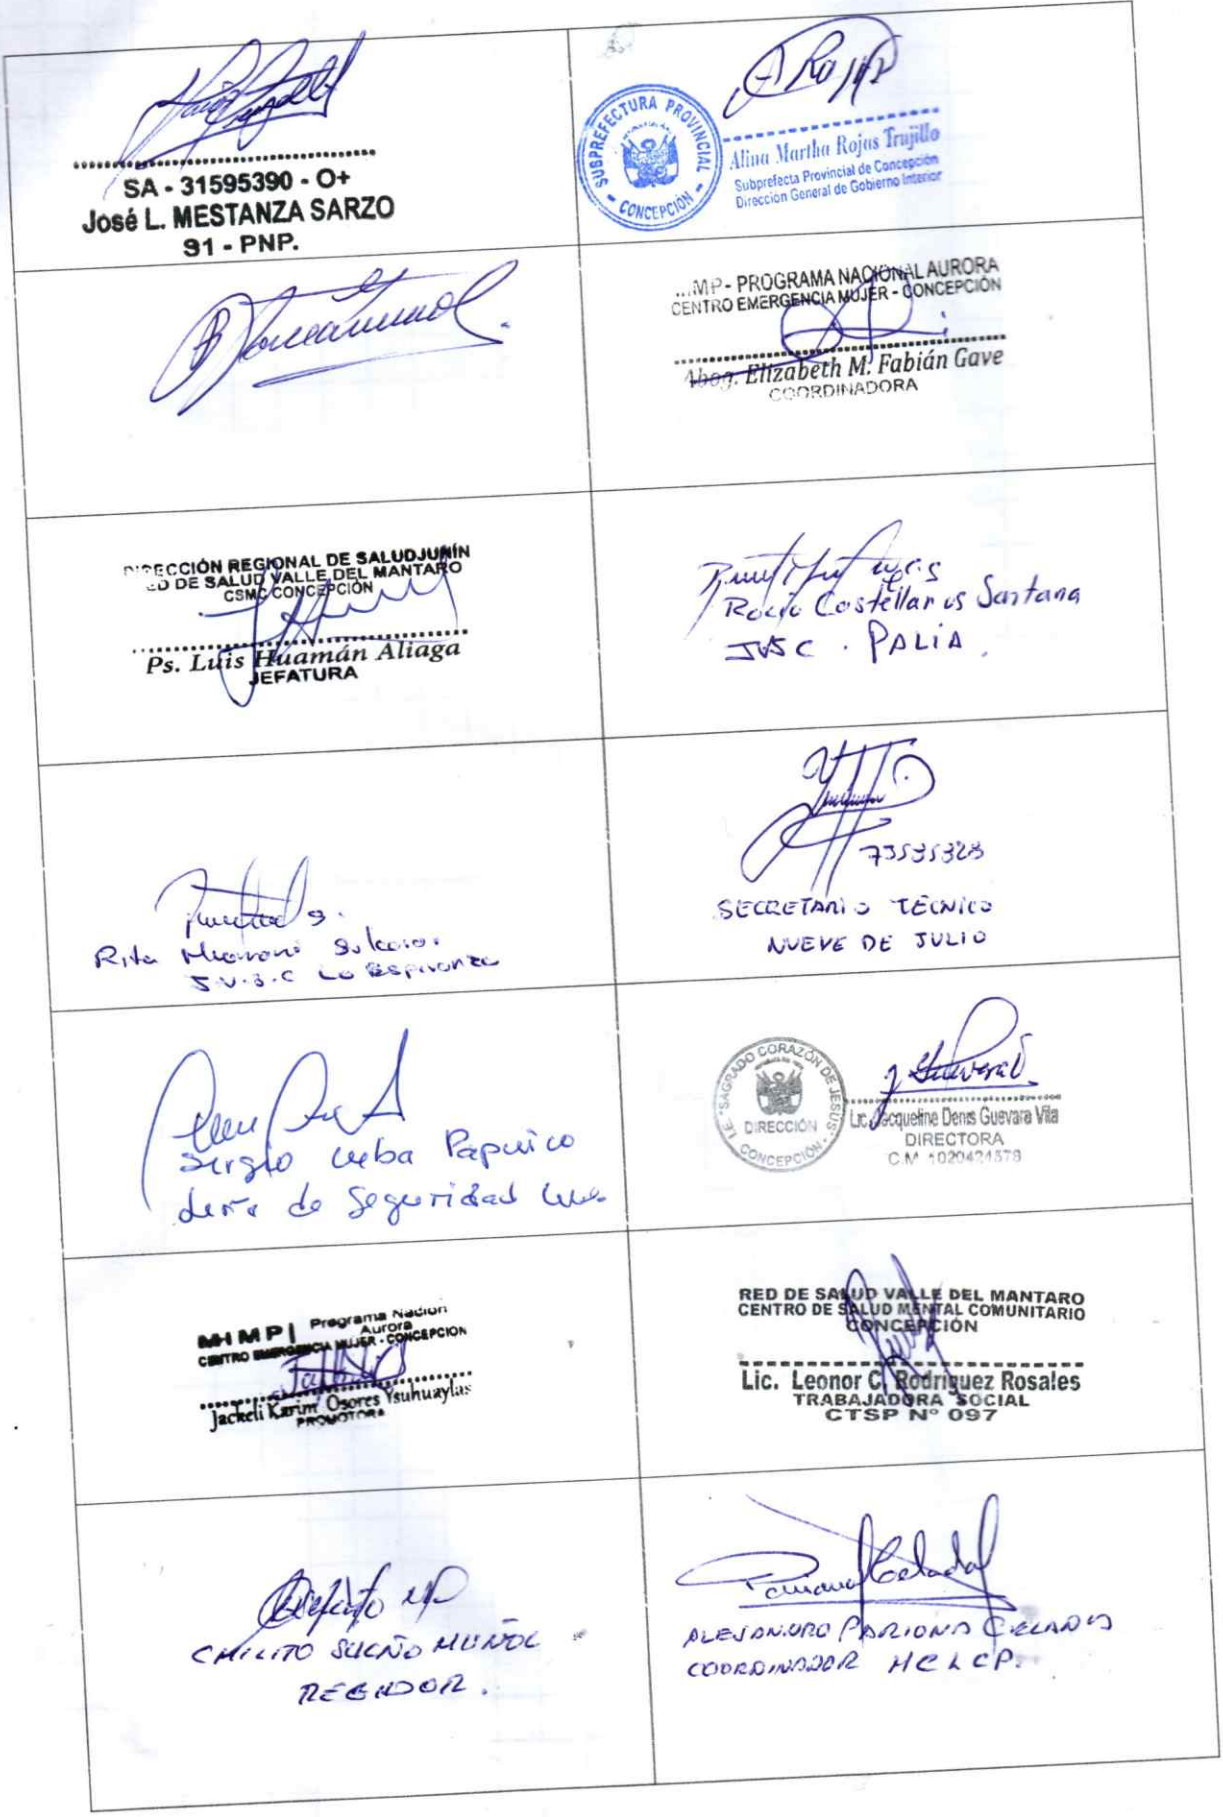 SA - 31595390 - O+
José L. MESTANZA SARZO
S1 - PNP.
SUBPREFECTURA PROVINCIAL
- CONCEPCIÓN -
Alina Martha Rojas Trujillo
Subprefecta Provincial de Concepción
Dirección General de Gobierno Interior
...MP - PROGRAMA NACIONAL AURORA
CENTRO EMERGENCIA MUJER - CONCEPCIÓN
Abog. Elizabeth M. Fabián Gave
COORDINADORA
DIRECCIÓN REGIONAL DE SALUD JUNÍN
ED DE SALUD VALLE DEL MANTARO
CSMC CONCEPCIÓN
Ps. Luis Huamán Aliaga
JEFATURA
Rocio Castellanos Santana
JVSC. PALIA.
Rita
J.V.S.C La Esperanza
73535328
SECRETARIO TÉCNICO
NUEVE DE JULIO
Sergio
de Seguridad
I.E. "SAGRADO CORAZÓN DE JESÚS"
DIRECCIÓN
CONCEPCIÓN
Lic. Jacqueline Denis Guevara Vila
DIRECTORA
C.M. 1020424578
MIMP | Programa Nacion
Aurora
CENTRO EMERGENCIA MUJER - CONCEPCION
Jackeli Karim Osores Ysuhuaylas
PROMOTORA
RED DE SALUD VALLE DEL MANTARO
CENTRO DE SALUD MENTAL COMUNITARIO
CONCEPCIÓN
Lic. Leonor C. Rodriguez Rosales
TRABAJADORA SOCIAL
CTSP Nº 097
MUÑOZ
REGIDOR.
ALEJANDRO PARIONA CELADO
COORDINADOR MCLCP.